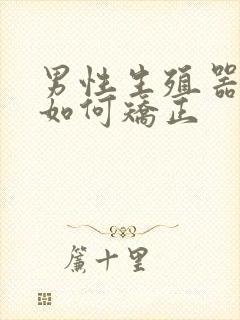 男性生殖器
如何矫正
帘十里